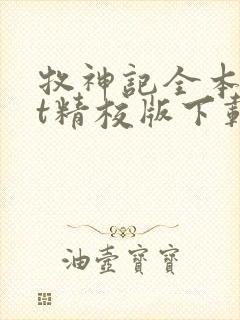 牧神記全本
t精校版下載
油壺寶寶